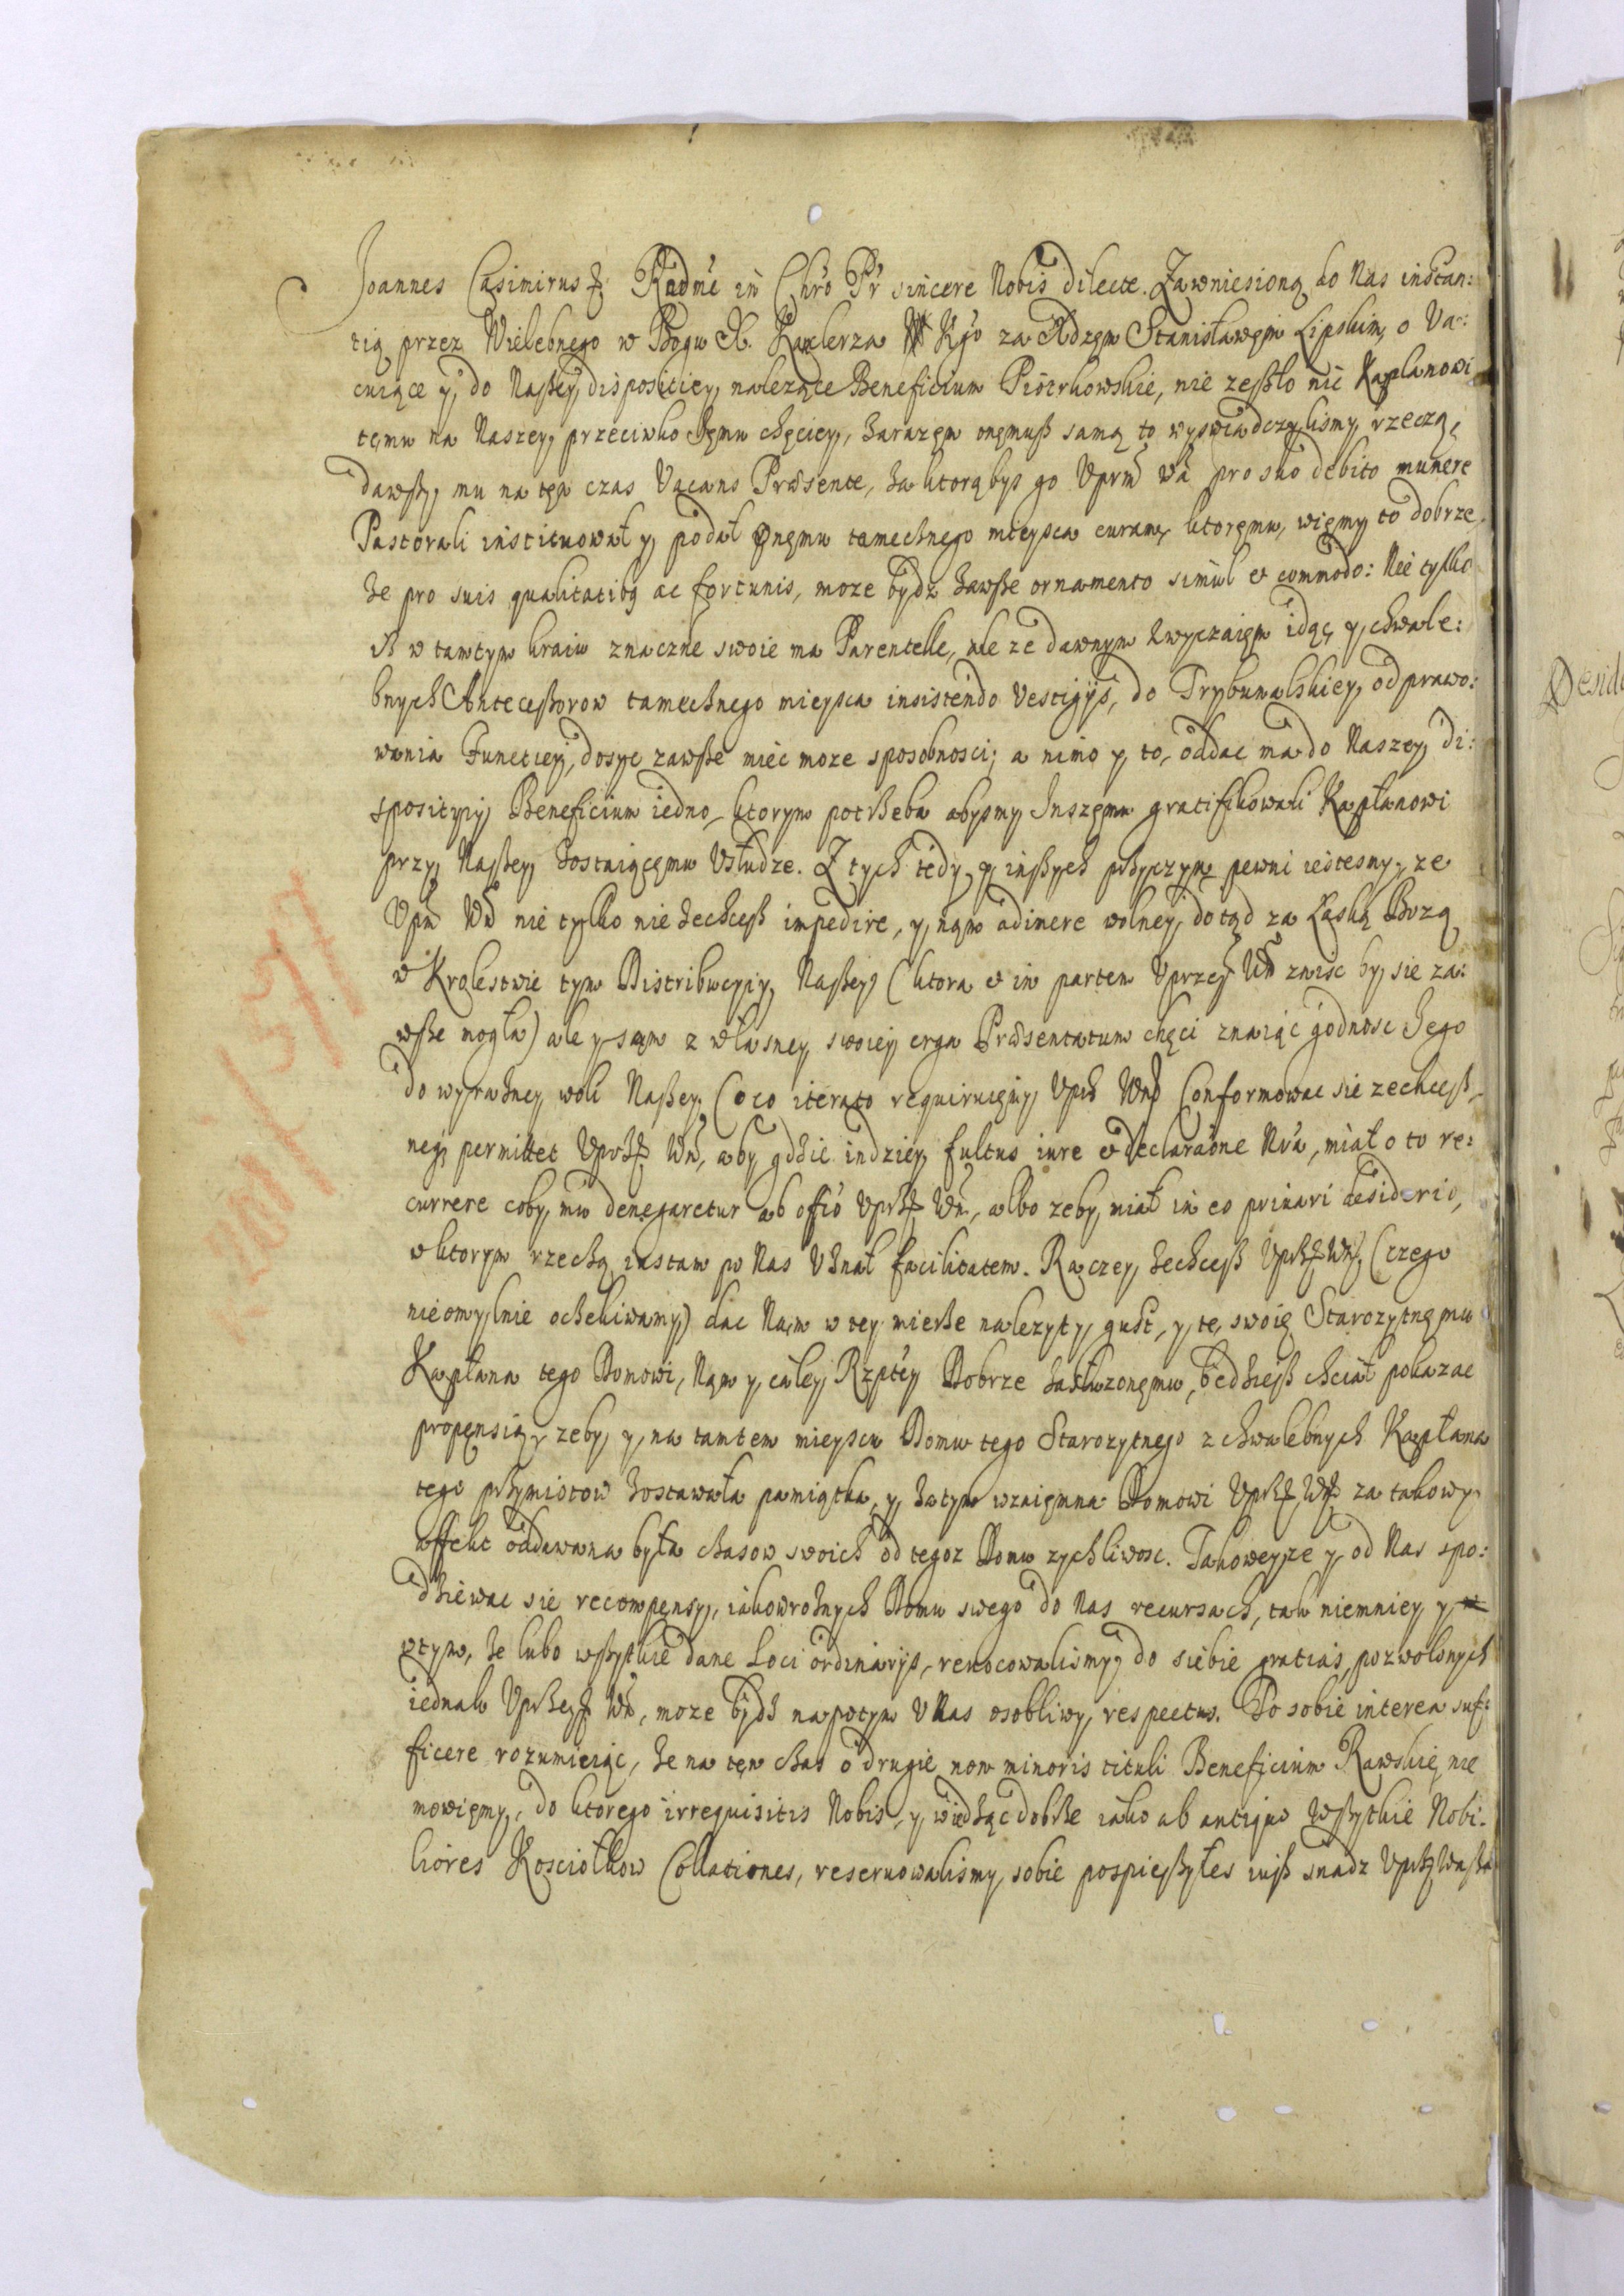 Joannes Casimirus etc. Rndme in Chro Pr sincere Nobis dilecte. Zawniesioną do Nas instan:
tią przez Wielebnego w Bogu X. Kanclerza Kgo za Xdzem Stanisławęm Lipskim, o Va:
cuiące y do Naßey disposiciey należące Beneficium Piotrkowskie, nie zeßło nic Kapłanowi
temu na Naszey przeciwko Jęmu chęciey, zarazęm onęmuß samą to wyswiadczylismy rzeczą,
dawßy mu na tęn czas Vacans Præsente, za ktorąbys go Vprm Wa pro suo debito munere
Pastorali instituował y podał Onęmu tamecznego mieysca curam, ktoręmu, więmy to dobrze
ze pro suis qualitatibq ac fortunis, moze bydz zawße ornamento simul et commodo: Nie tylko
iß w tamtym kraiu znaczne swoie ma Parentelle, ale ze dawnym zwyczaięm idąc y chwale:
bnych Anteceßorow tamecznego mieysca insistendo vestigijs, do Trybunalskiey odprawo:
wania Functiey, dosyc zawße miec moze sposobnosci; a nimo y to, oddac ma do Naszey di:
sposityiy Beneficium iedno, ktorym potrzeba abysmy Inszęmu gratifikowali Kapłanowi
przy Naßey zostaiącęmu Vsłudze. Z tych tedy y inßych przyczyn pewni iestesmy, ze
Vpm Wa nie tylko nie zechceß impedire, y nąm adimere wolney dotąd za Łaską Bozą
w Krolestwie tym Distribucyiy Naßey (ktora et in partem Vprzey Wm znisc by sie za:
wße mogła) ale y sąm z własney swoiey erga Præsentatum chęci znaiąc godnosc Jego
do wyrazney woli Naßey (oco iterato requiruięmy Vprz Wm) Conformowac sie zechceß,
neq permittet Vprz Wm, aby gdzie indziey fultus iure et declaraone Nra, miał o to re:
currere coby mu denegaretur ab offio Vprz Wm, albo zeby miał in eo priuari desiderio,
wktorym rzeczą iustam po Nas Vznał facilitatem. Raczey zechceß Vprz Wm, (czego
nieomylnie oczekiwamy) dac Nąm w tey mierze nalezyty gust, y tę swoię Starozytnęmu
Kapłana tego Domowi, Nąm y całey Rzptey Dobrze zasłuzonęmu, będzieß chciał pokazac
propęnsią, zeby y na tamtem mieyscu Domu tego Starozytnego z chwalebnych Kapłana
tego przymiotow zostawała pamiątka, y zatym wzaięmna Domowi Vprz Wm za takowy
affekt oddawana była czasow swoich od tegoz Domu zychliwosc. Takoweyze y od Nas spo:
dziewac sie recompęnsy, iakowroznych Domu swego do Nas recursach, tak niemniey y
wtym, ze lubo wßytkie dane Loci ordinarijs, reuocowalismy do siebie gratias, pozwolonych
iednak Vprzey Wm, moze bydz napotym V Nas osobliwy respectus. Do sobie interea suf:
ficere rozumieiąc, ze na tęn czas o drugie non minoris tituli Beneficium Rawskię nie
mowięmy, do ktorego irrequisitis Nobis, y wiedząc dobrze iako ab antiquo Wßytkie Nobi:
liores Kosciołkow Collationes, reseruowalismy sobie pospießyłes iuß snadz Vprz Waßa